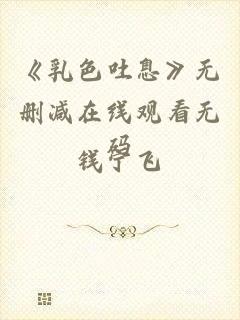 《乳色吐息》无
删减在线观看无
码
钱宁飞